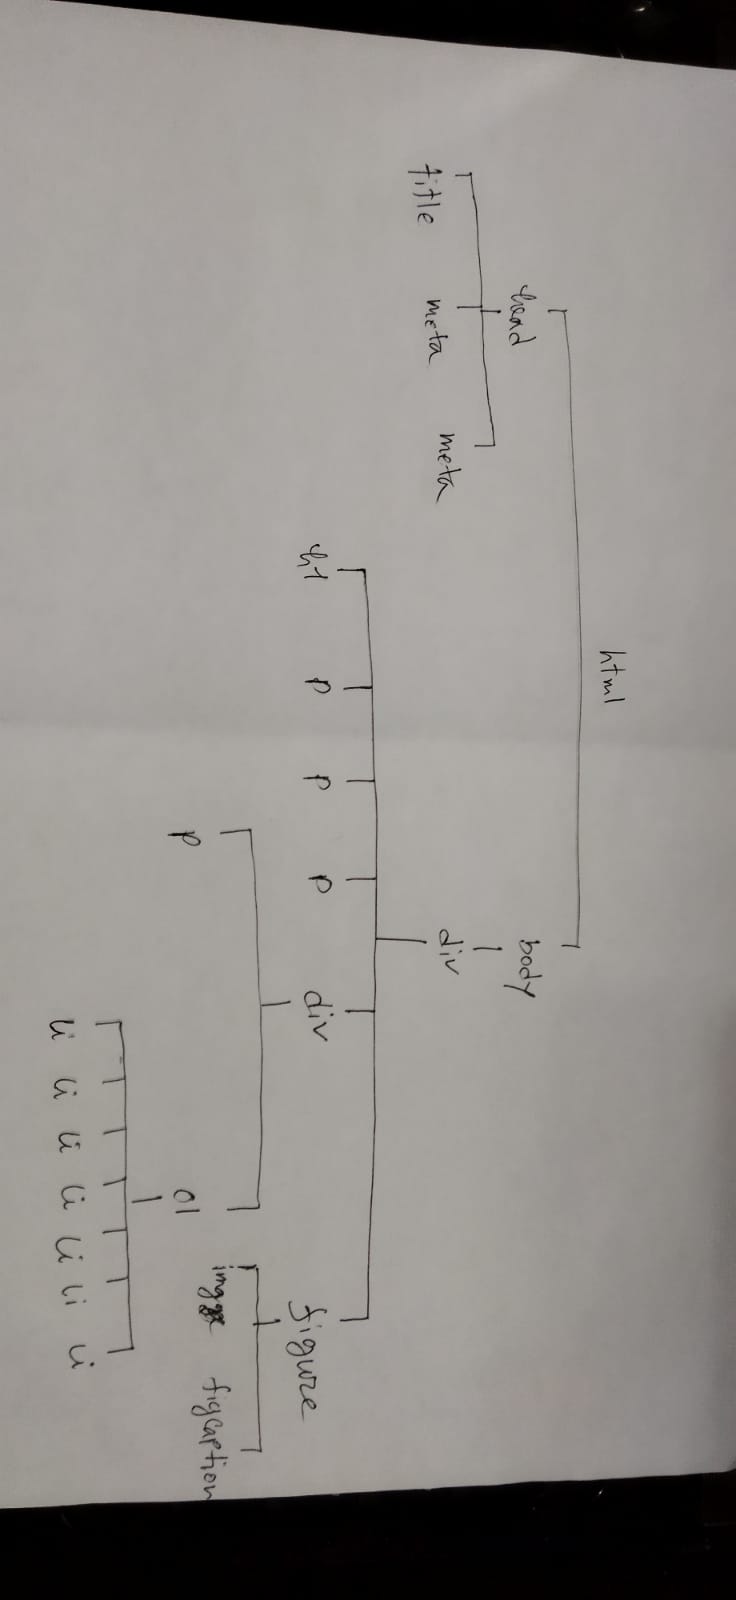 html
head body
title meta meta
div
h1 p p p div figure
img figcaption
p ol
li li li li li li li